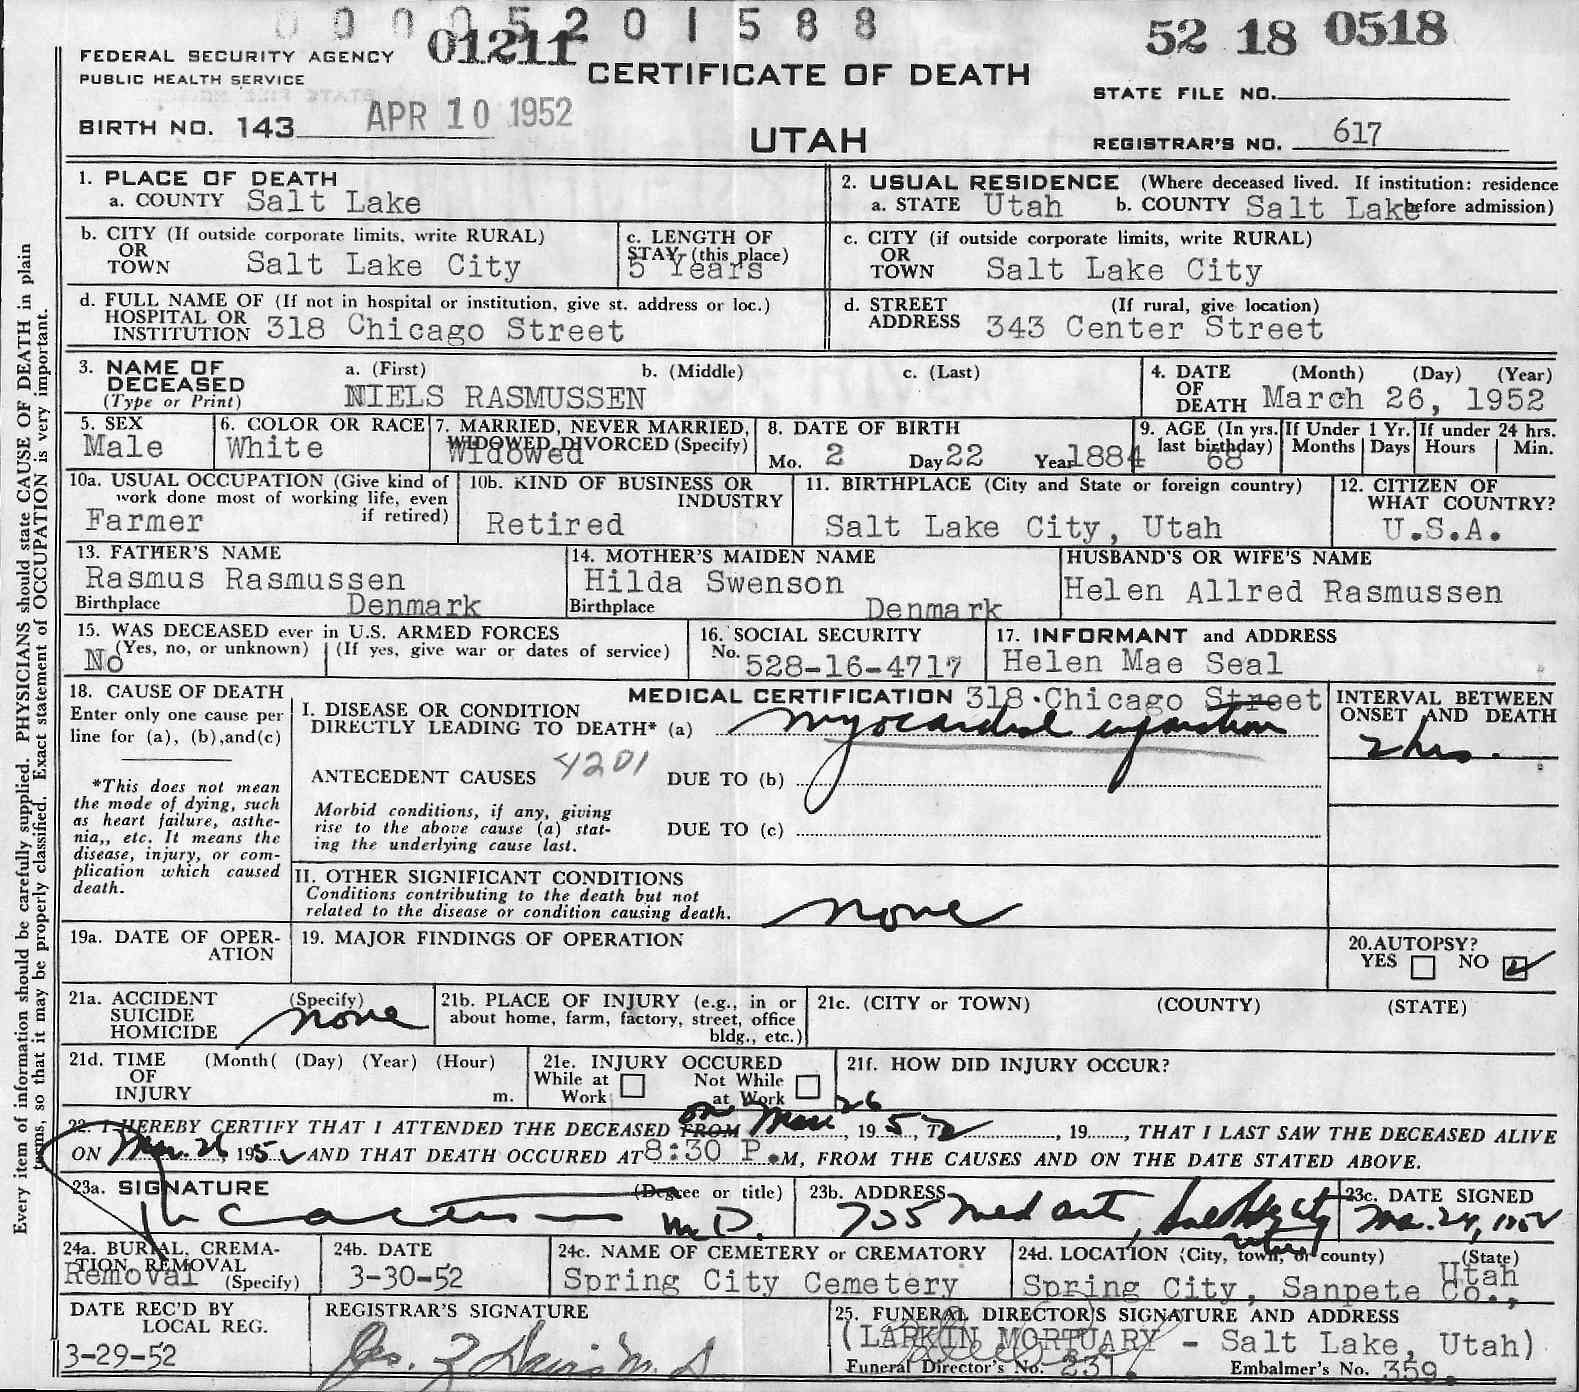 0 0 0 5 2 0 1 5 8 8
01211
52 18 0518
FEDERAL SECURITY AGENCY
PUBLIC HEALTH SERVICE
CERTIFICATE OF DEATH
STATE FILE NO.
BIRTH NO. 143
APR 10 1952
UTAH
REGISTRAR'S NO. 617
1. PLACE OF DEATH
a. COUNTY Salt Lake
2. USUAL RESIDENCE (Where deceased lived. If institution: residence before admission)
a. STATE Utah b. COUNTY Salt Lake
b. CITY (If outside corporate limits, write RURAL)
OR
TOWN Salt Lake City
c. LENGTH OF
STAY (this place)
5 Years
c. CITY (if outside corporate limits, write RURAL)
OR
TOWN Salt Lake City
d. FULL NAME OF (If not in hospital or institution, give st. address or loc.)
HOSPITAL OR
INSTITUTION 318 Chicago Street
d. STREET (If rural, give location)
ADDRESS 343 Center Street
3. NAME OF
DECEASED
(Type or Print)
a. (First) b. (Middle) c. (Last)
NIELS RASMUSSEN
4. DATE (Month) (Day) (Year)
OF
DEATH March 26, 1952
5. SEX
Male
6. COLOR OR RACE
White
7. MARRIED, NEVER MARRIED,
WIDOWED DIVORCED (Specify)
Widowed
8. DATE OF BIRTH
Mo. 2 Day 22 Year 1884
9. AGE (In yrs. last birthday)
68
If Under 1 Yr.
Months Days
If under 24 hrs.
Hours Min.
10a. USUAL OCCUPATION (Give kind of
work done most of working life, even
if retired)
Farmer
10b. KIND OF BUSINESS OR
INDUSTRY
Retired
11. BIRTHPLACE (City and State or foreign country)
Salt Lake City, Utah
12. CITIZEN OF
WHAT COUNTRY?
U.S.A.
13. FATHER'S NAME
Rasmus Rasmussen
Birthplace Denmark
14. MOTHER'S MAIDEN NAME
Hilda Swenson
Birthplace Denmark
HUSBAND'S OR WIFE'S NAME
Helen Allred Rasmussen
15. WAS DECEASED ever in U.S. ARMED FORCES
(Yes, no, or unknown) (If yes, give war or dates of service)
No
16. SOCIAL SECURITY
No. 528-16-4717
17. INFORMANT and ADDRESS
Helen Mae Seal
318 Chicago Street
18. CAUSE OF DEATH
Enter only one cause per
line for (a), (b),and(c)
*This does not mean
the mode of dying, such
as heart failure, asthe-
nia,, etc. It means the
disease, injury, or com-
plication which caused
death.
MEDICAL CERTIFICATION
I. DISEASE OR CONDITION
DIRECTLY LEADING TO DEATH* (a) myocardial infarction
ANTECEDENT CAUSES 4201 DUE TO (b)
Morbid conditions, if any, giving
rise to the above cause (a) stat-
ing the underlying cause last.
DUE TO (c)
INTERVAL BETWEEN
ONSET AND DEATH
2 hrs.
II. OTHER SIGNIFICANT CONDITIONS
Conditions contributing to the death but not
related to the disease or condition causing death.
none
19a. DATE OF OPER-
ATION
19. MAJOR FINDINGS OF OPERATION
20.AUTOPSY?
YES NO
21a. ACCIDENT (Specify)
SUICIDE
HOMICIDE none
21b. PLACE OF INJURY (e.g., in or
about home, farm, factory, street, office
bldg., etc.)
21c. (CITY or TOWN) (COUNTY) (STATE)
21d. TIME (Month( (Day) (Year) (Hour)
OF
INJURY m.
21e. INJURY OCCURED
While at Work Not While at Work
21f. HOW DID INJURY OCCUR?
22. I HEREBY CERTIFY THAT I ATTENDED THE DECEASED FROM on Mar 26, 1952, TO, 19, THAT I LAST SAW THE DECEASED ALIVE
ON Mar. 26, 1952 AND THAT DEATH OCCURED AT 8:30 P.M, FROM THE CAUSES AND ON THE DATE STATED ABOVE.
23a. SIGNATURE (Degree or title)
M.D.
23b. ADDRESS
735 Med arts, Salt Lake City Utah
23c. DATE SIGNED
24a. BURIAL, CREMA-
TION REMOVAL
(Specify)
Removal
24b. DATE
3-30-52
24c. NAME OF CEMETERY or CREMATORY
Spring City Cemetery
24d. LOCATION (City, town, or county) (State)
Spring City, Sanpete Co., Utah
DATE REC'D BY
LOCAL REG.
3-29-52
REGISTRAR'S SIGNATURE
Geo. Z Davis M.D
25. FUNERAL DIRECTOR'S SIGNATURE AND ADDRESS
(LARKIN MORTUARY - Salt Lake, Utah)
Funeral Director's No. 231. Embalmer's No. 359.
Every item of information should be carefully supplied. PHYSICIANS should state CAUSE OF DEATH in plain
terms, so that it may be properly classified. Exact statement of OCCUPATION is very important.